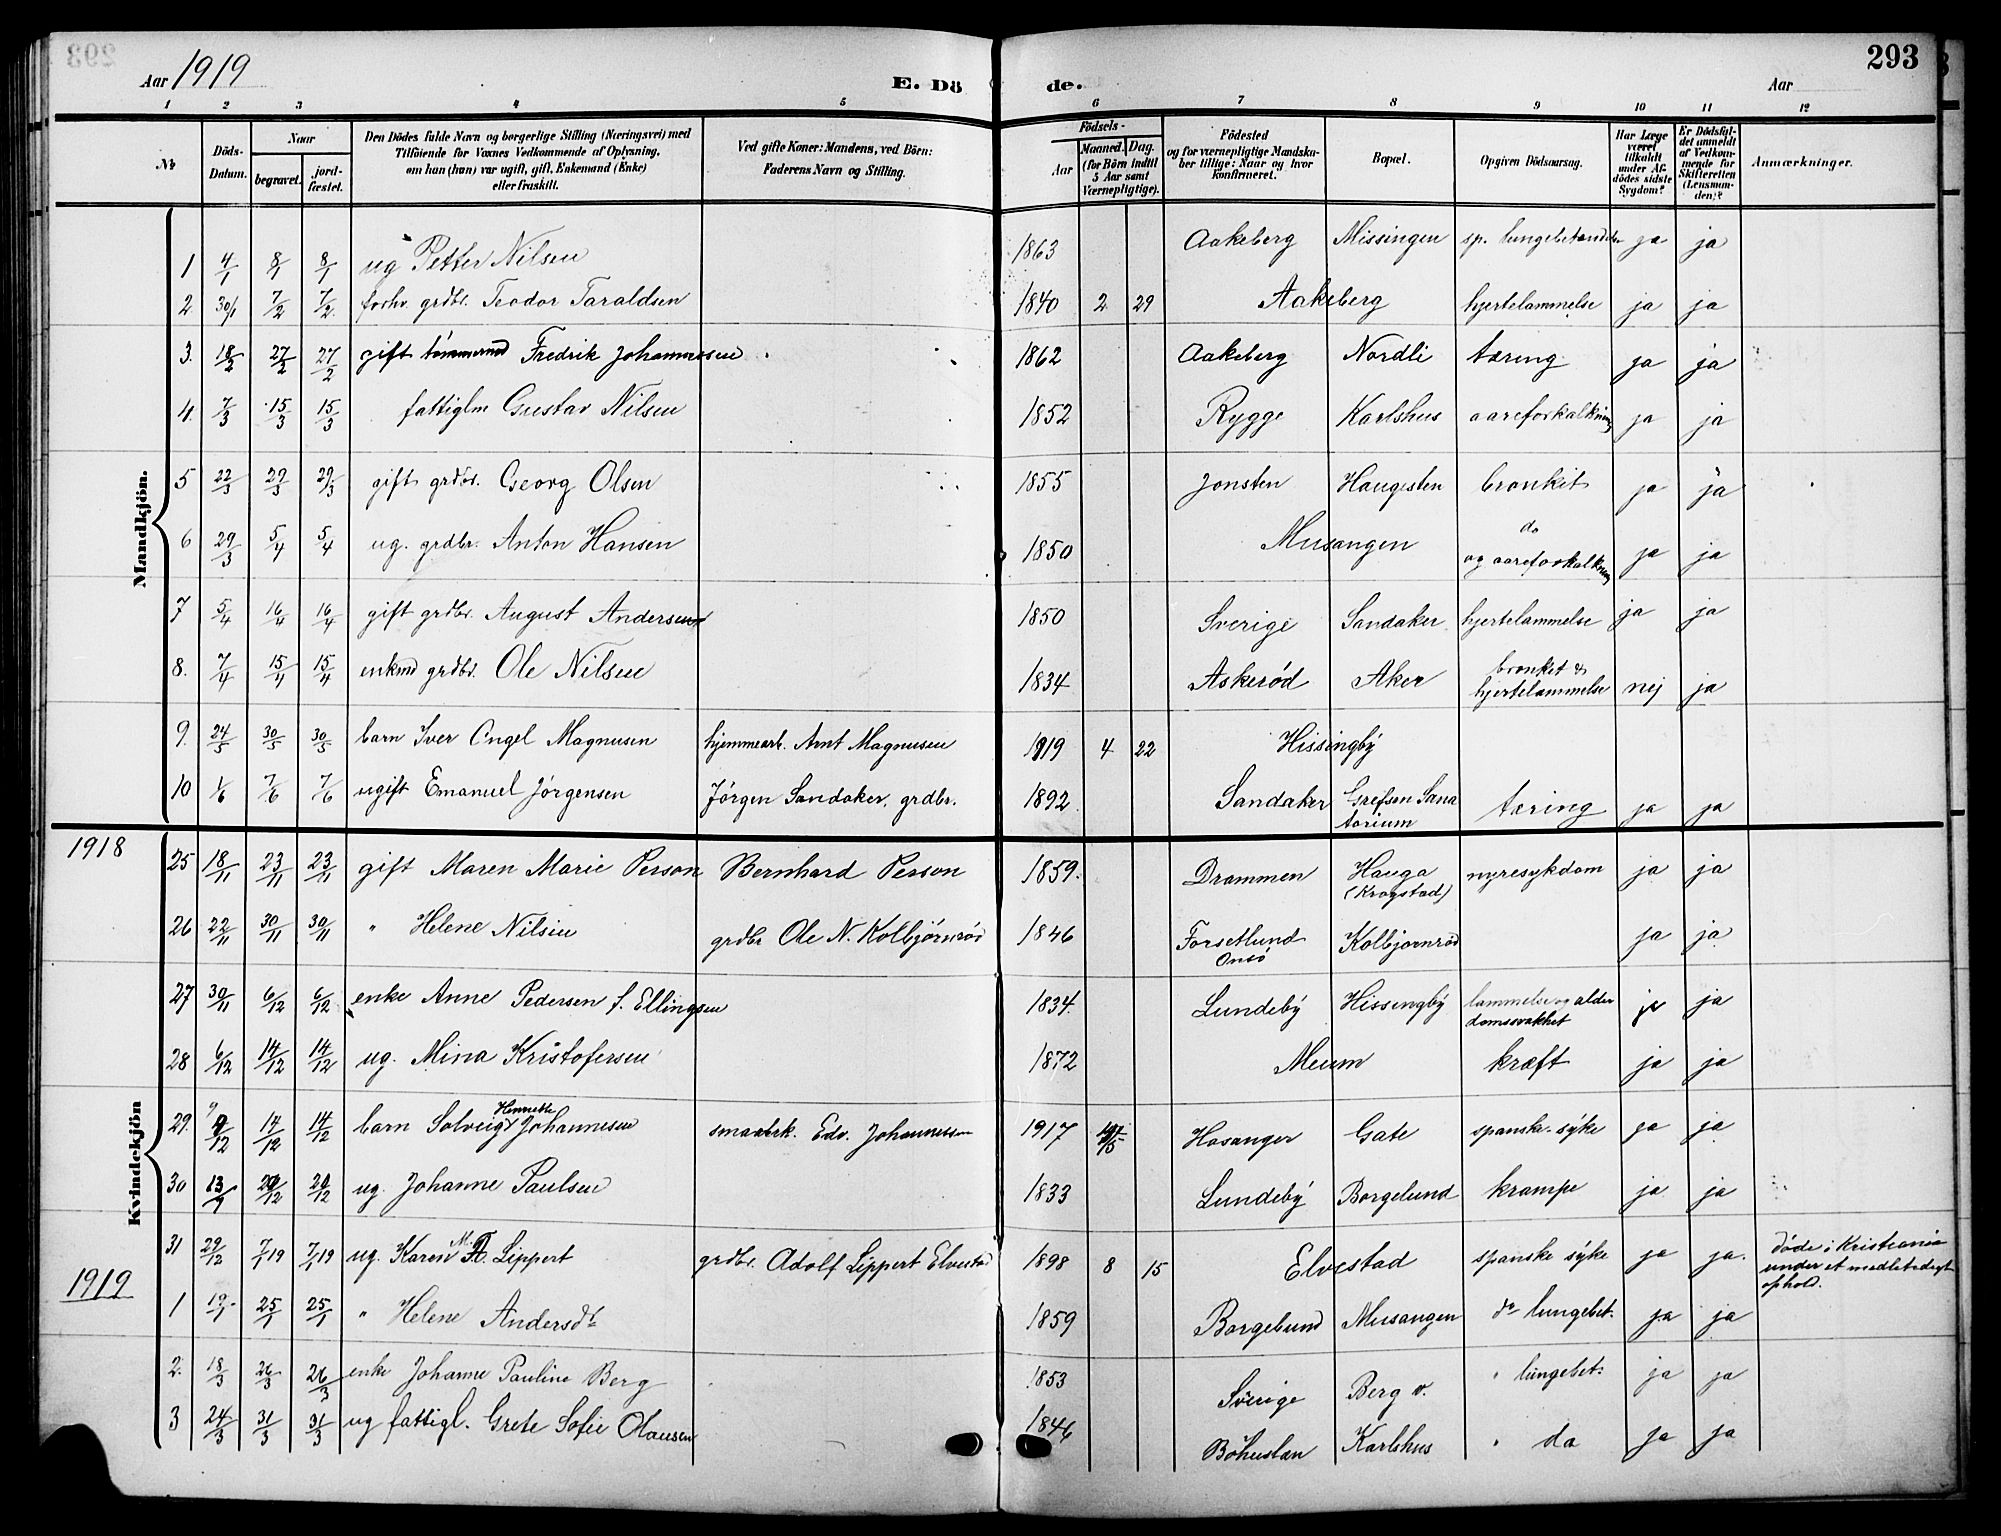 Aar 1919 E. Döde. Aar 293
1 2 3 4 5 6 7 8 9 10 11 12
No. Döds-Datum. Naar begravet. jordfæstet. Den Dödes fulde Navn og borgerlige Stilling (Næringsvei) med Tilföiende for Voxnes Vedkommende af Oplysning, om han (hun) var ugift, gift, Enkemand (Enke) eller fraskilt. Ved gifte Koner: Mandens, ved Börn: Faderens Navn og Stilling. Födsels- Aar Maaned. Dag. (for Börn indtil 5 Aar samt Værnepligtige). Födested og for værnepligtige Mandskaber tillige: Naar og hvor konfirmeret. Bopæl. Opgiven Dödsaarsag. Har Læge været tilkaldt under Afdödes sidste Sygdom? Er Dödsfaldet anmeldt af Vedkommende for Skifteretten (Lensmanden)? Anmærkninger.
Mandkjön.
1 4/1 8/1 8/1 ug Petter Nilsen 1863 Aakeberg Missingen sp. lungebetændelse ja ja
2 30/1 7/2 7/2 forhv grdbr. Teodor Taraldsen 1840 2 29 Aakeberg hjertelammelse ja ja
3. 18/2 27/2 27/2 gift tømmermd Fredrik Johannessen 1862 Aakeberg Nordli tæring ja ja
4. 7/3 15/3 15/3 fattiglm Gustav Nilsen 1852 Rygge Karlshus aareforkalkning ja ja
5 22/3 29/3 29/3 gift grdbr. Georg Olsen 1855 Jonsten Haugesten bronkit ja ja
6 29/3 5/4 5/4 ug. grdbr. Anton Hansen 1850 Musangen do og aareforkalkning ja ja
7 5/4 16/4 16/4 gift grdbr. August Andersen 1850 Sverige Sandaker hjertelammelse ja ja
8. 7/4 15/4 15/4 enkmd grdbr. Ole Nilsen 1834 Askerød Aker bronket & hjertelammelse nej ja
9. 24/5 30/5 30/5 barn Iver Engel Magnusen hjemmearb. Arnt Magnusen 1919 4 22 Hissingby
10 1/6 7/6 7/6 ugift Emanuel Jørgensen Jørgen Sandaker, grdbr. 1892 Sandaker Grefsen Sanatorium tæring ja ja
1918
Kvindekjön
25 18/11 23/11 23/11 gift Maren Marie Person Bernhard Person 1859. Drammen Hauga (Krogstad) nyresykdom ja ja
26 22/11 30/11 30/11 " Helene Nilsen grdbr Ole N. Kolbjørnrød 1846 Forsetlund Onsö Kolbjornrød ja ja
27 30/11 6/12 6/12 enke Anne Pedersen f. Ellingsen 1834. Lundeby Hissingby lammelse og alderdomssvakhet ja ja
28 6/12 14/12 14/12 ug. Mina Kristofersen 1872 Meum kræft ja ja
29. 9/12 14/12 14/12 barn Solveig Henriette Johannesen smaabrk. Edv. Johannessen 1917 Hosanger Gate spanske-syke ja ja
30 13/ 20/12 20/12 ug. Johanne Paulsen 1833 Lundeby Borgelund krampe ja ja
31 29/12 7/1 19 7/1 19 ug. Karen M. A. Lippert grdbr. Adolf Lippert Elvestad 1898 8 15 Elvestad spanske syke ja ja. døde i Kristiania under et midlertidigt ophold.
1919
1 19/1 25/1 25/1 " Helene Andersdtr 1859 Borgelund Musangen do lungebet. ja ja
2. 18/3 26/3 26/3 enke Johanne Pauline Berg 1853 Sverige Berg v. " lungebet. ja ja
3 24/3 31/3 31/3 ug fattigl. Grete Sofie Olausen 1846 Bohuslan Karlshus " do ja ja